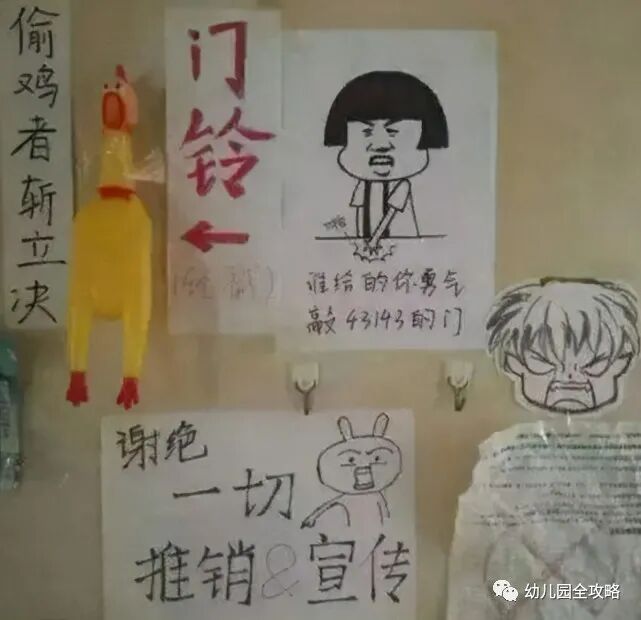 偷鸡者斩立决
门铃
谁给的你勇气
敲43143的门
谢绝
一切
推销&宣传
幼儿园全攻略